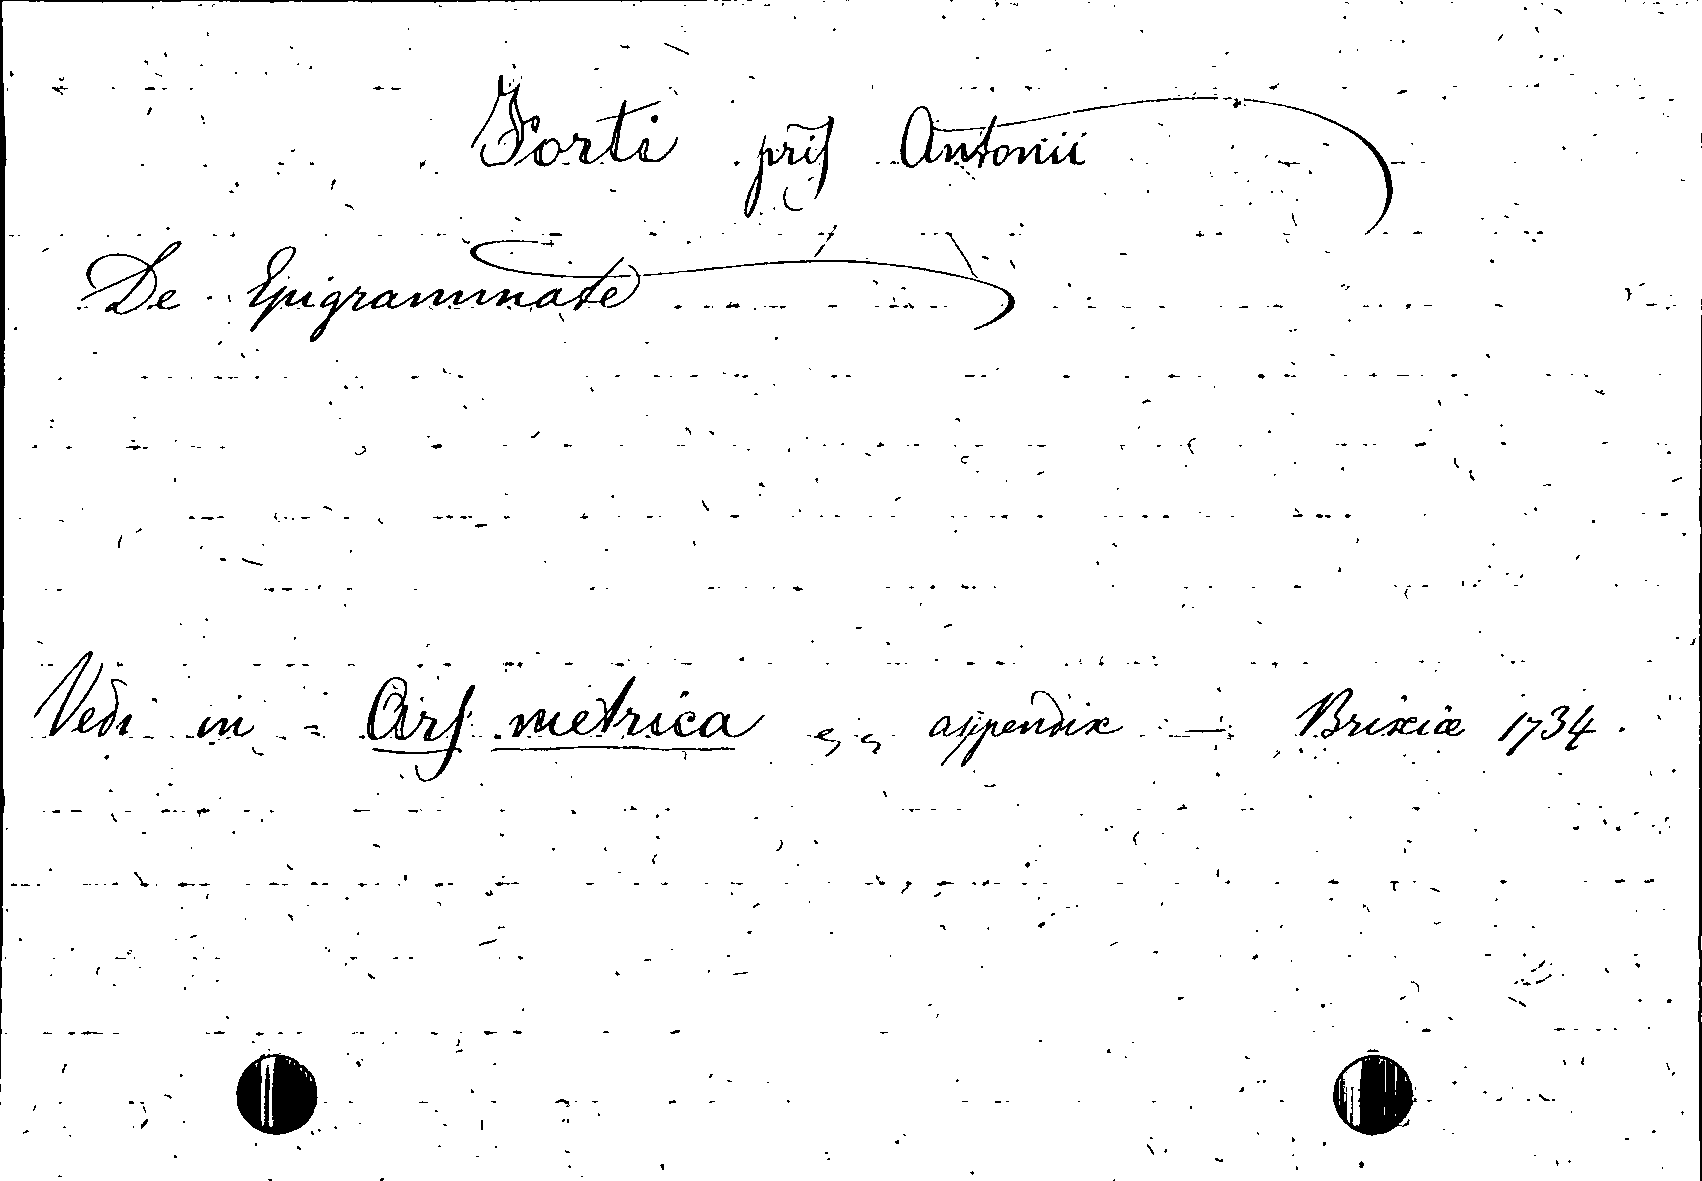 Forti pris Antonii
De Epigrammate
Vedi in = Ars metrica „ appendix — Brixiæ 1734.